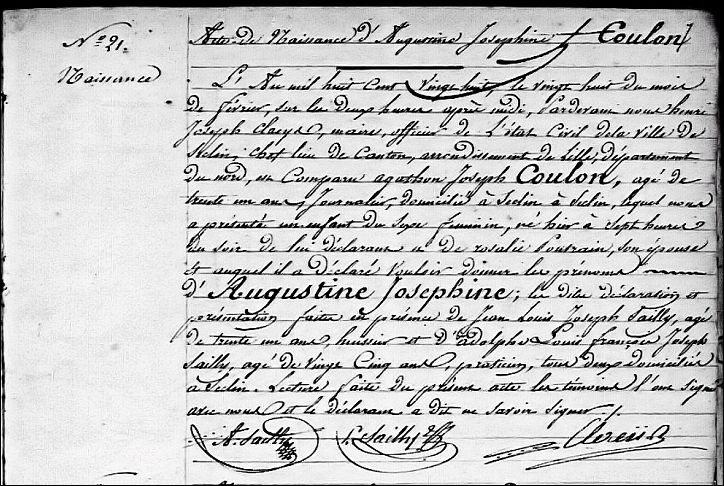 N° 21.
Naissance
Acte de Naissance d'Augustine Josephine Coulon
L'An mil huit cent vingt huit, le vingt huit du mois
de février sur les deux heures après midi, Pardevant nous henri
Joseph maire, officier de L'état Civil de la Ville de
Séclin, chef lieu de Canton, arrondissement de Lille, département
du nord, est Comparu agathon Joseph COULON, agé de
trente un ans, Journalier, domicilié à Séclin à Séclin, lequel nous
a présenté un enfant du sexe féminin, né hier à Sept heures
du soir de lui déclarant et de rosalie Poutrain, son épouse
et auquel il a déclaré Vouloir donner les prénoms
d'Augustine Josephine; les dite déclaration et
présentation faite en présence de Jean Louis Joseph Sailly, agé
de trente un ans, huissier et d'adolphe Louis françois Joseph
Sailly, agé de Vingt Cinq ans, praticien, tous deux domiciliés
à Séclin. Lecture faite du présent acte les témoins l'ont signé
avec nous et le déclarant a dit ne savoir signer.
A. Sailly L. Sailly